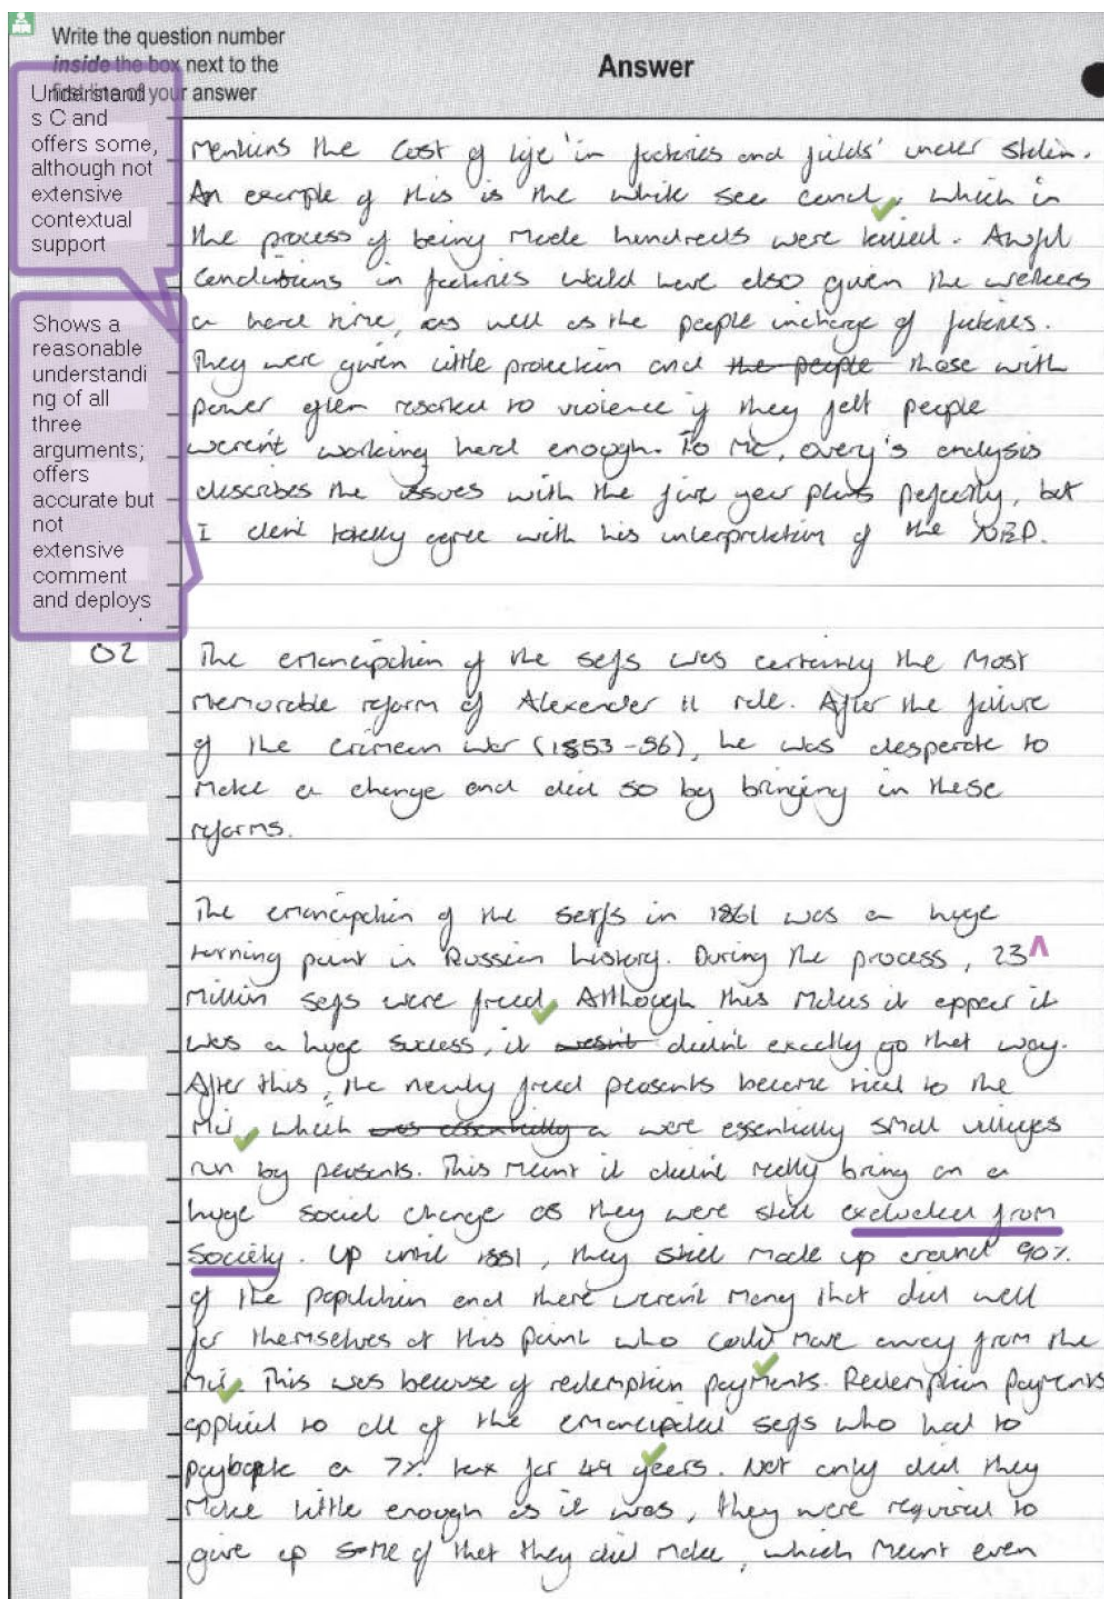 Write the question number
inside the box next to the
first line of your answer
Answer
Understand
s C and
offers some,
although not
extensive
contextual
support
Shows a
reasonable
understandi
ng of all
three
arguments;
offers
accurate but
not
extensive
comment
and deploys
Mentions the cost of life 'in factories and fields' under Stalin.
An example of this is the white sea canal, which in
the process of being made hundreds were killed. Awful
conditions in factories would have also given the workers
a hard time, as well as the people incharge of factories.
They were given little protection and the people those with
power often resorted to violence if they felt people
weren't working hard enough. To me, overy's analysis
describes the issues with the five year plans perfectly, but
I don't totally agree with his interpretation of the NEP.
02
The emancipation of the serfs was certainly the most
memorable reform of Alexander II rule. After the failure
of the Crimean War (1853-56), he was desperate to
make a change and did so by bringing in these
reforms.
The emancipation of the serfs in 1861 was a huge
turning point in Russian history. During the process, 23
million serfs were freed. Although this makes it appear it
was a huge success, it wasn't didn't exactly go that way.
After this, the newly freed peasants became tied to the
Mir, which was essentially a were essentially small villages
run by peasants. This meant it didn't really bring on a
huge social change as they were still excluded from
society. Up until 1881, they still made up around 90%
of the population and there weren't many that did well
for themselves at this point who could move away from the
Mir. This was because of redemption payments. Redemption payments
applied to all of the emancipated serfs who had to
payback a 7% tax for 49 years. Not only did they
make little enough as it was, they were required to
give up some of that they did make, which meant even